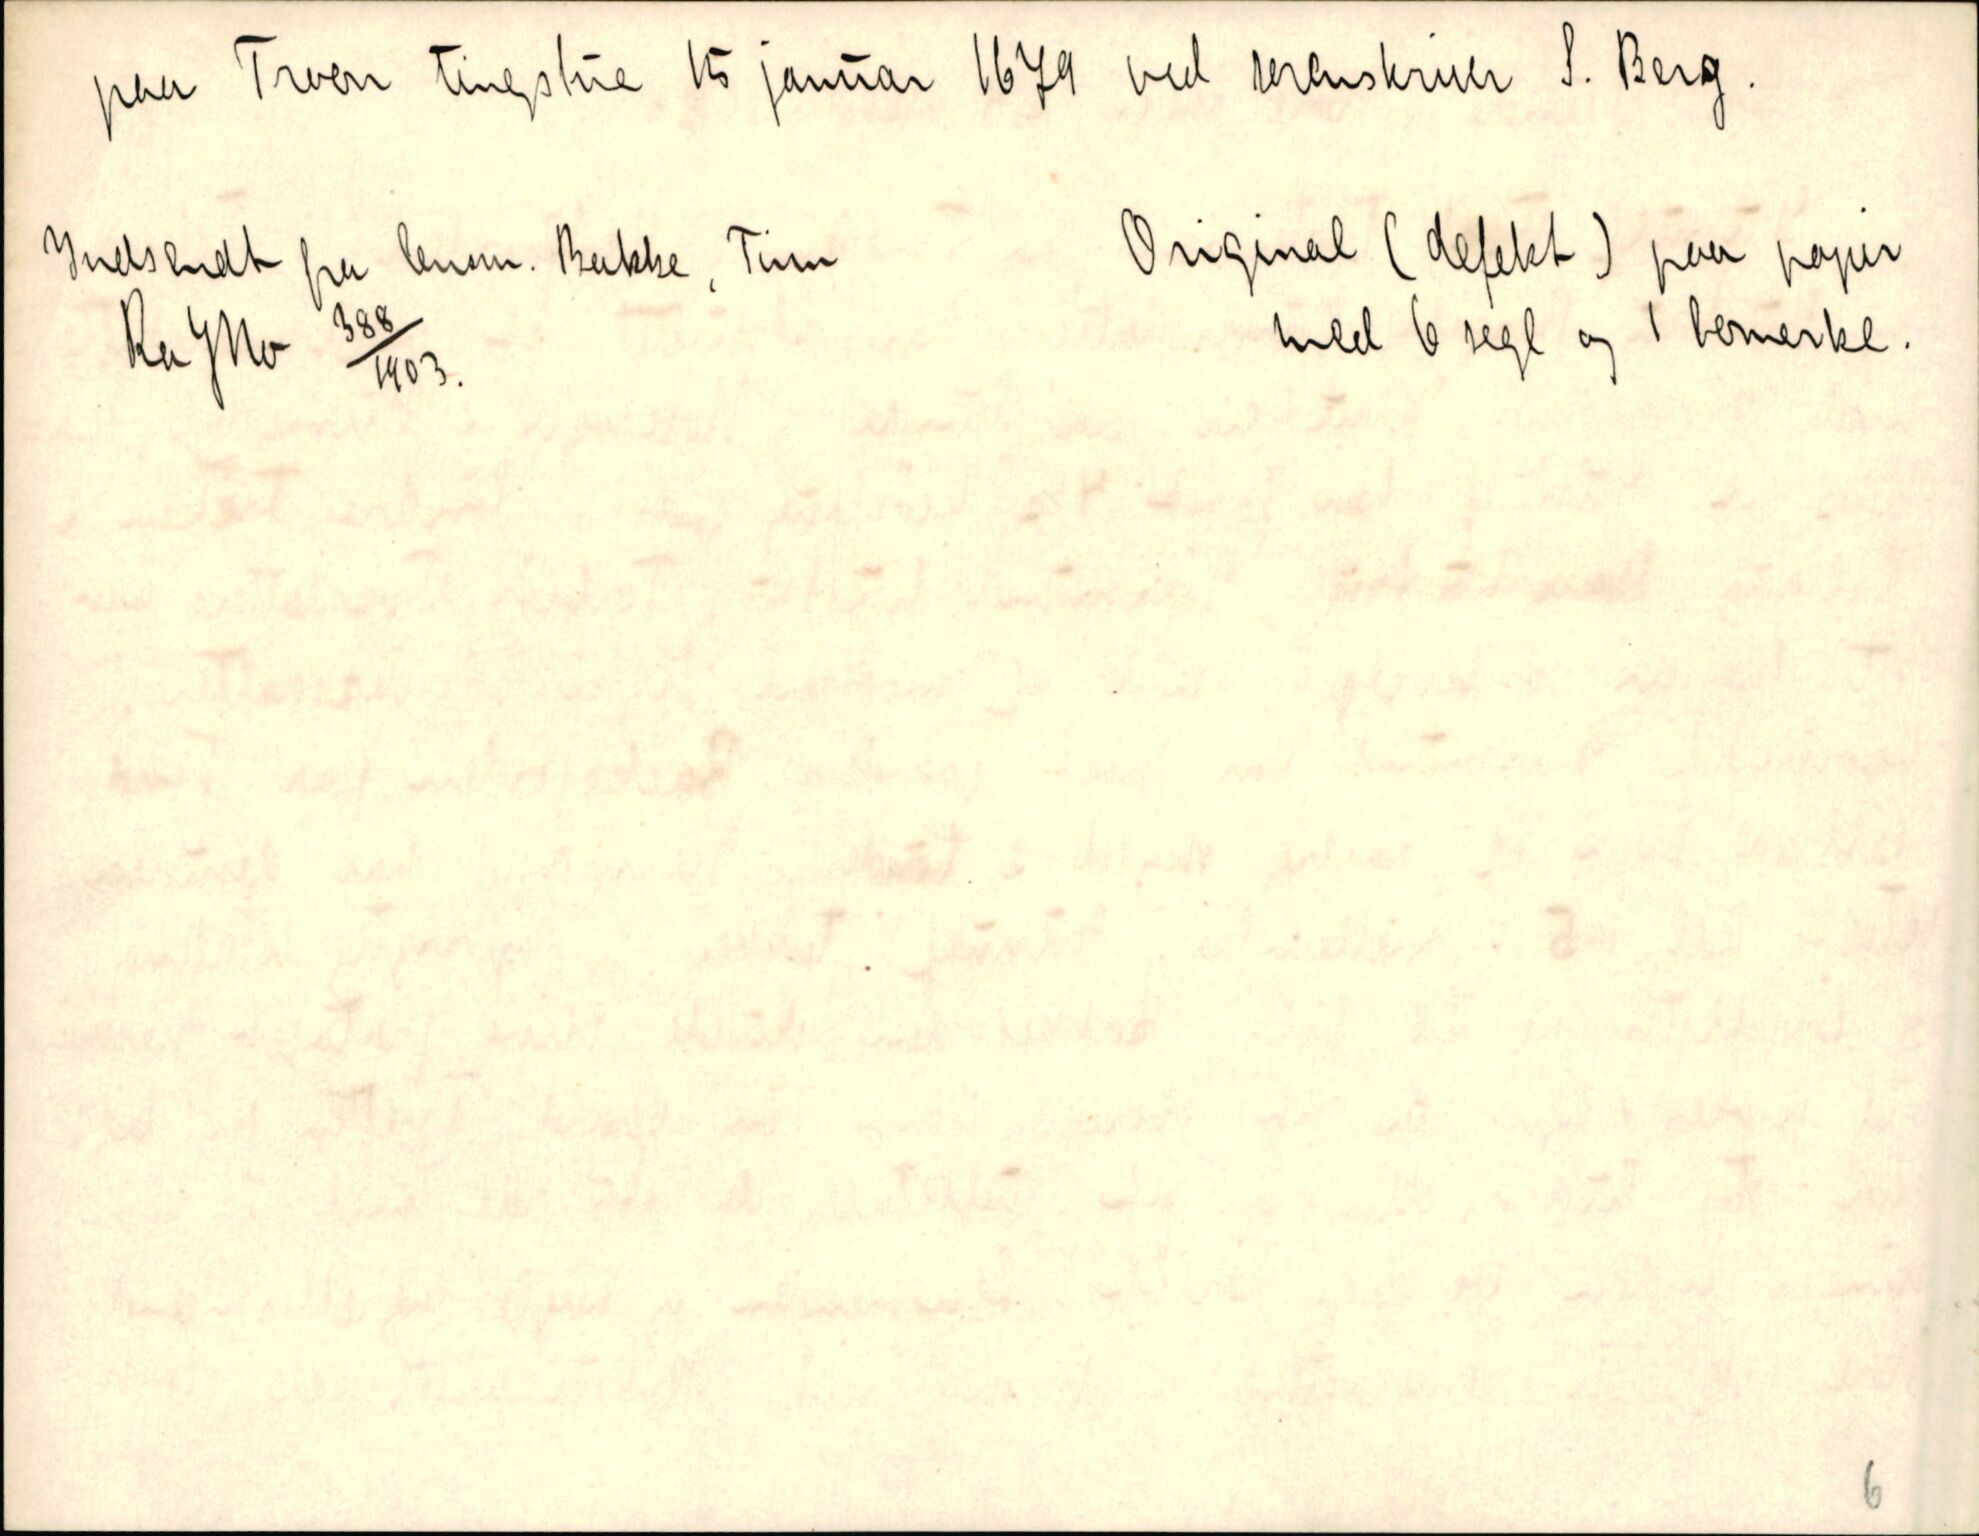 paa Troen tingstue 15 januar 1679 ved sorenskriver S. Berg.
Indsendt fra lensm. Bakke, Tinn
Original (defekt) paa papir
Ra JNo 388/1903.
med 6 segl og 1 bomerke.
6